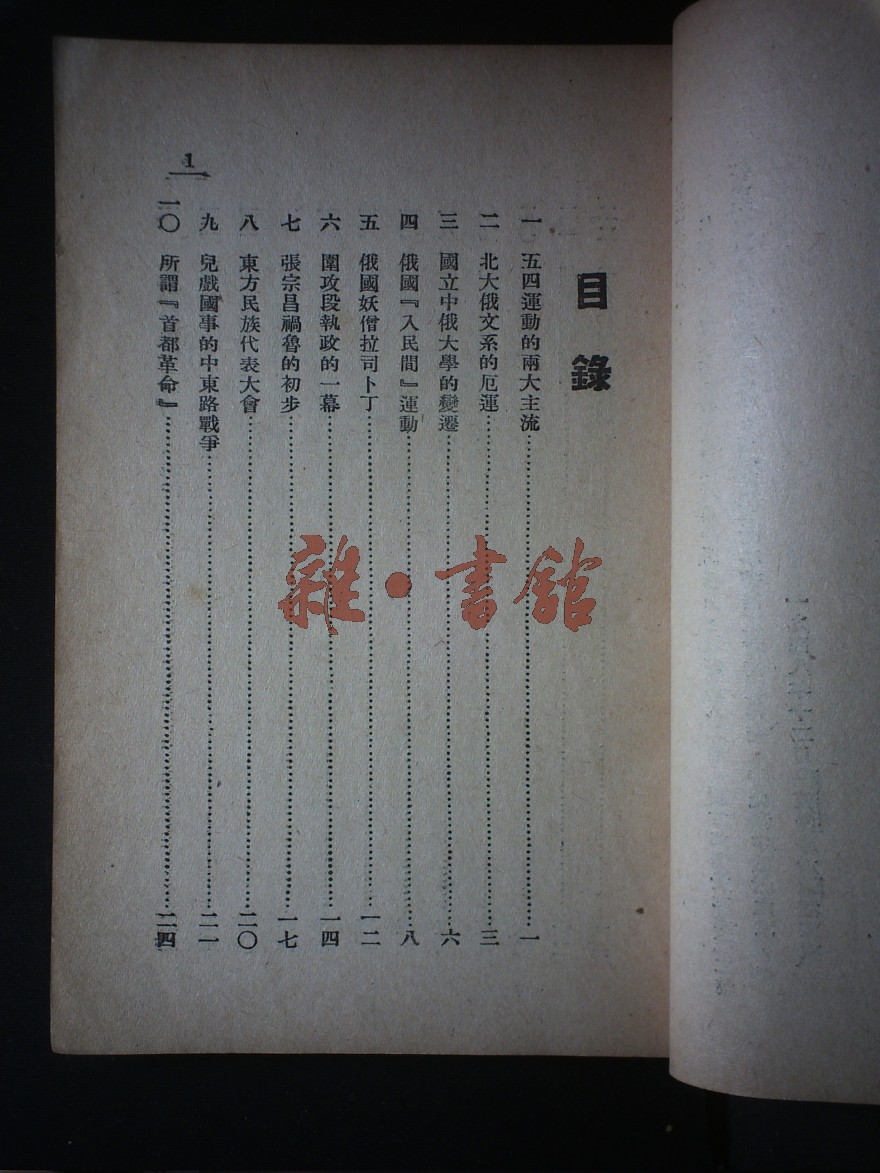 目錄
一 五四運動的兩大主流……一
二 北大俄文系的厄運……三
三 國立中俄大學的變遷……六
四 俄國『入民間』運動……八
五 俄國妖僧拉司卜丁……一二
六 圍攻段執政的一幕……一四
七 張宗昌禍魯的初步……一七
八 東方民族代表大會……二〇
九 兒戲國事的中東路戰爭……二一
一〇 所謂『首都革命』……二四
1
雜·書館